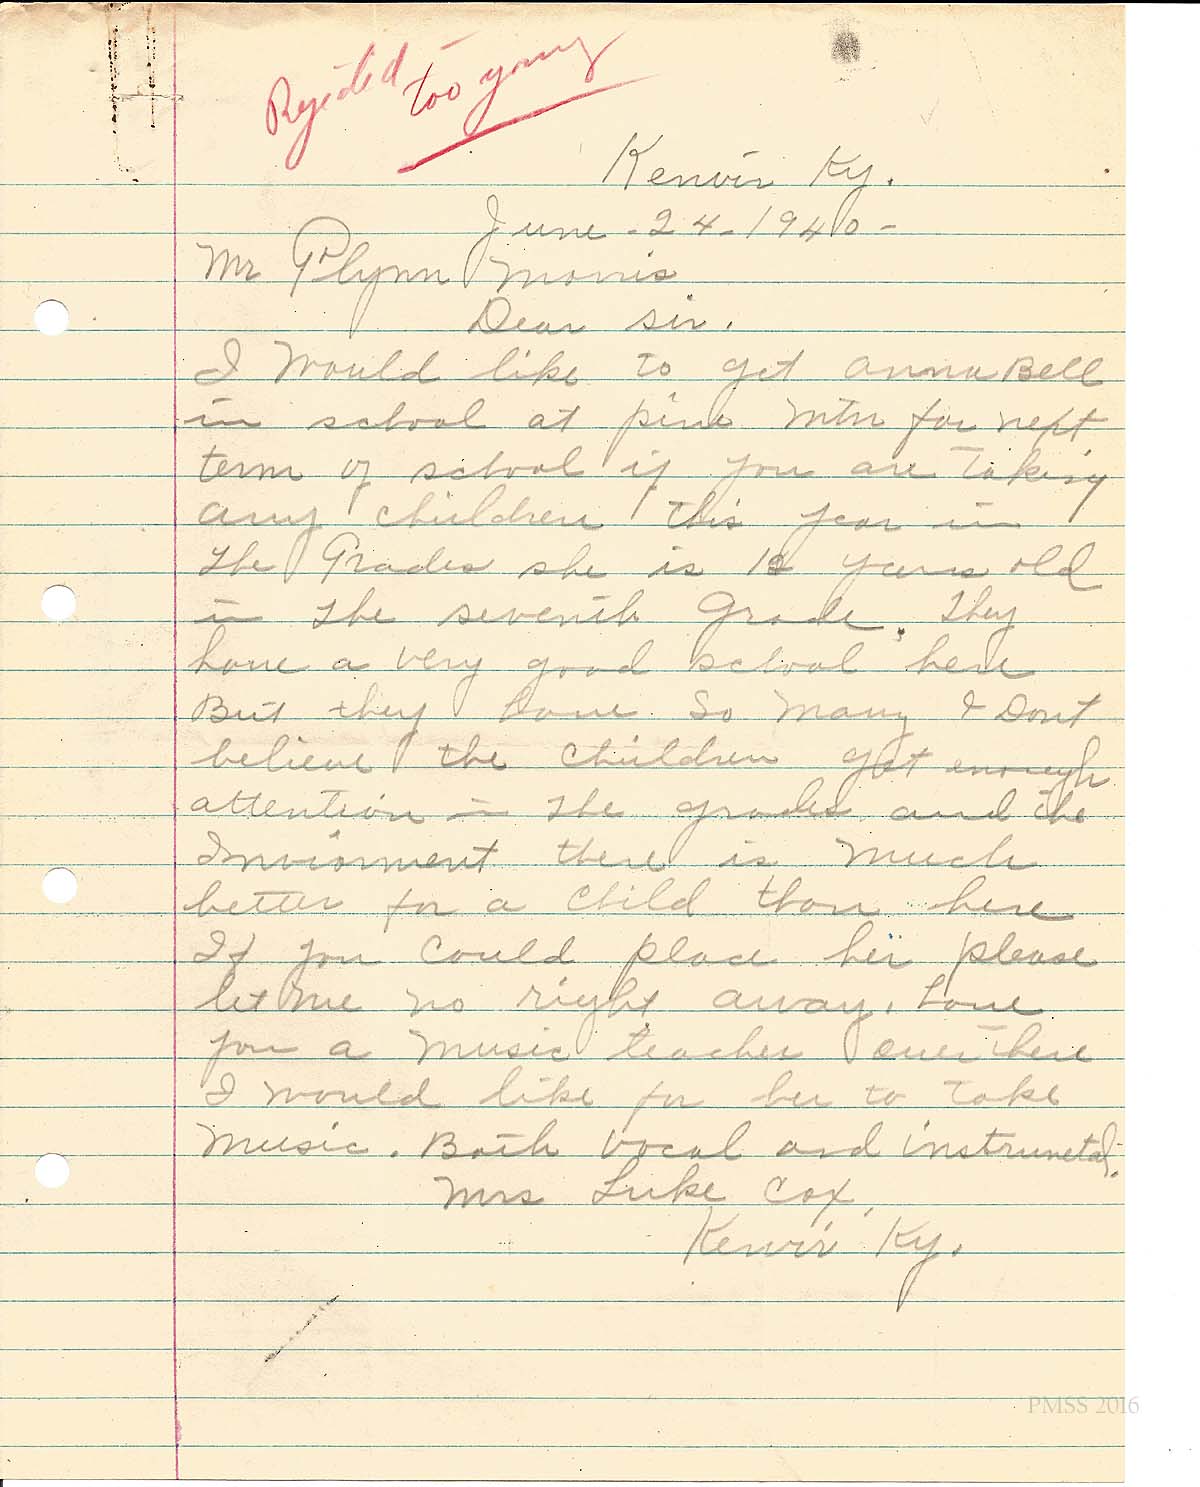 Rejected
too young
Kenvir Ky.
June - 24 - 1940 -
Mr Glynn Morris
Dear sir.
I Would like to get Anna Bell
in school at pine Mtn for next
term of school if you are taking
any children this year in
the Grades she is 12 years old
in the seventh Grade. They
have a very good school here
But they have so many I Dont
believe the children get enough
attention in the grades and the
Inviorment there is much
better for a child than here
If you could place her please
let me no right away. have
you a music teacher over there
I would like for her to take
music. Both vocal and instrumetal.
Mrs Luke Cox,
Kenvir Ky.
PMSS 2016